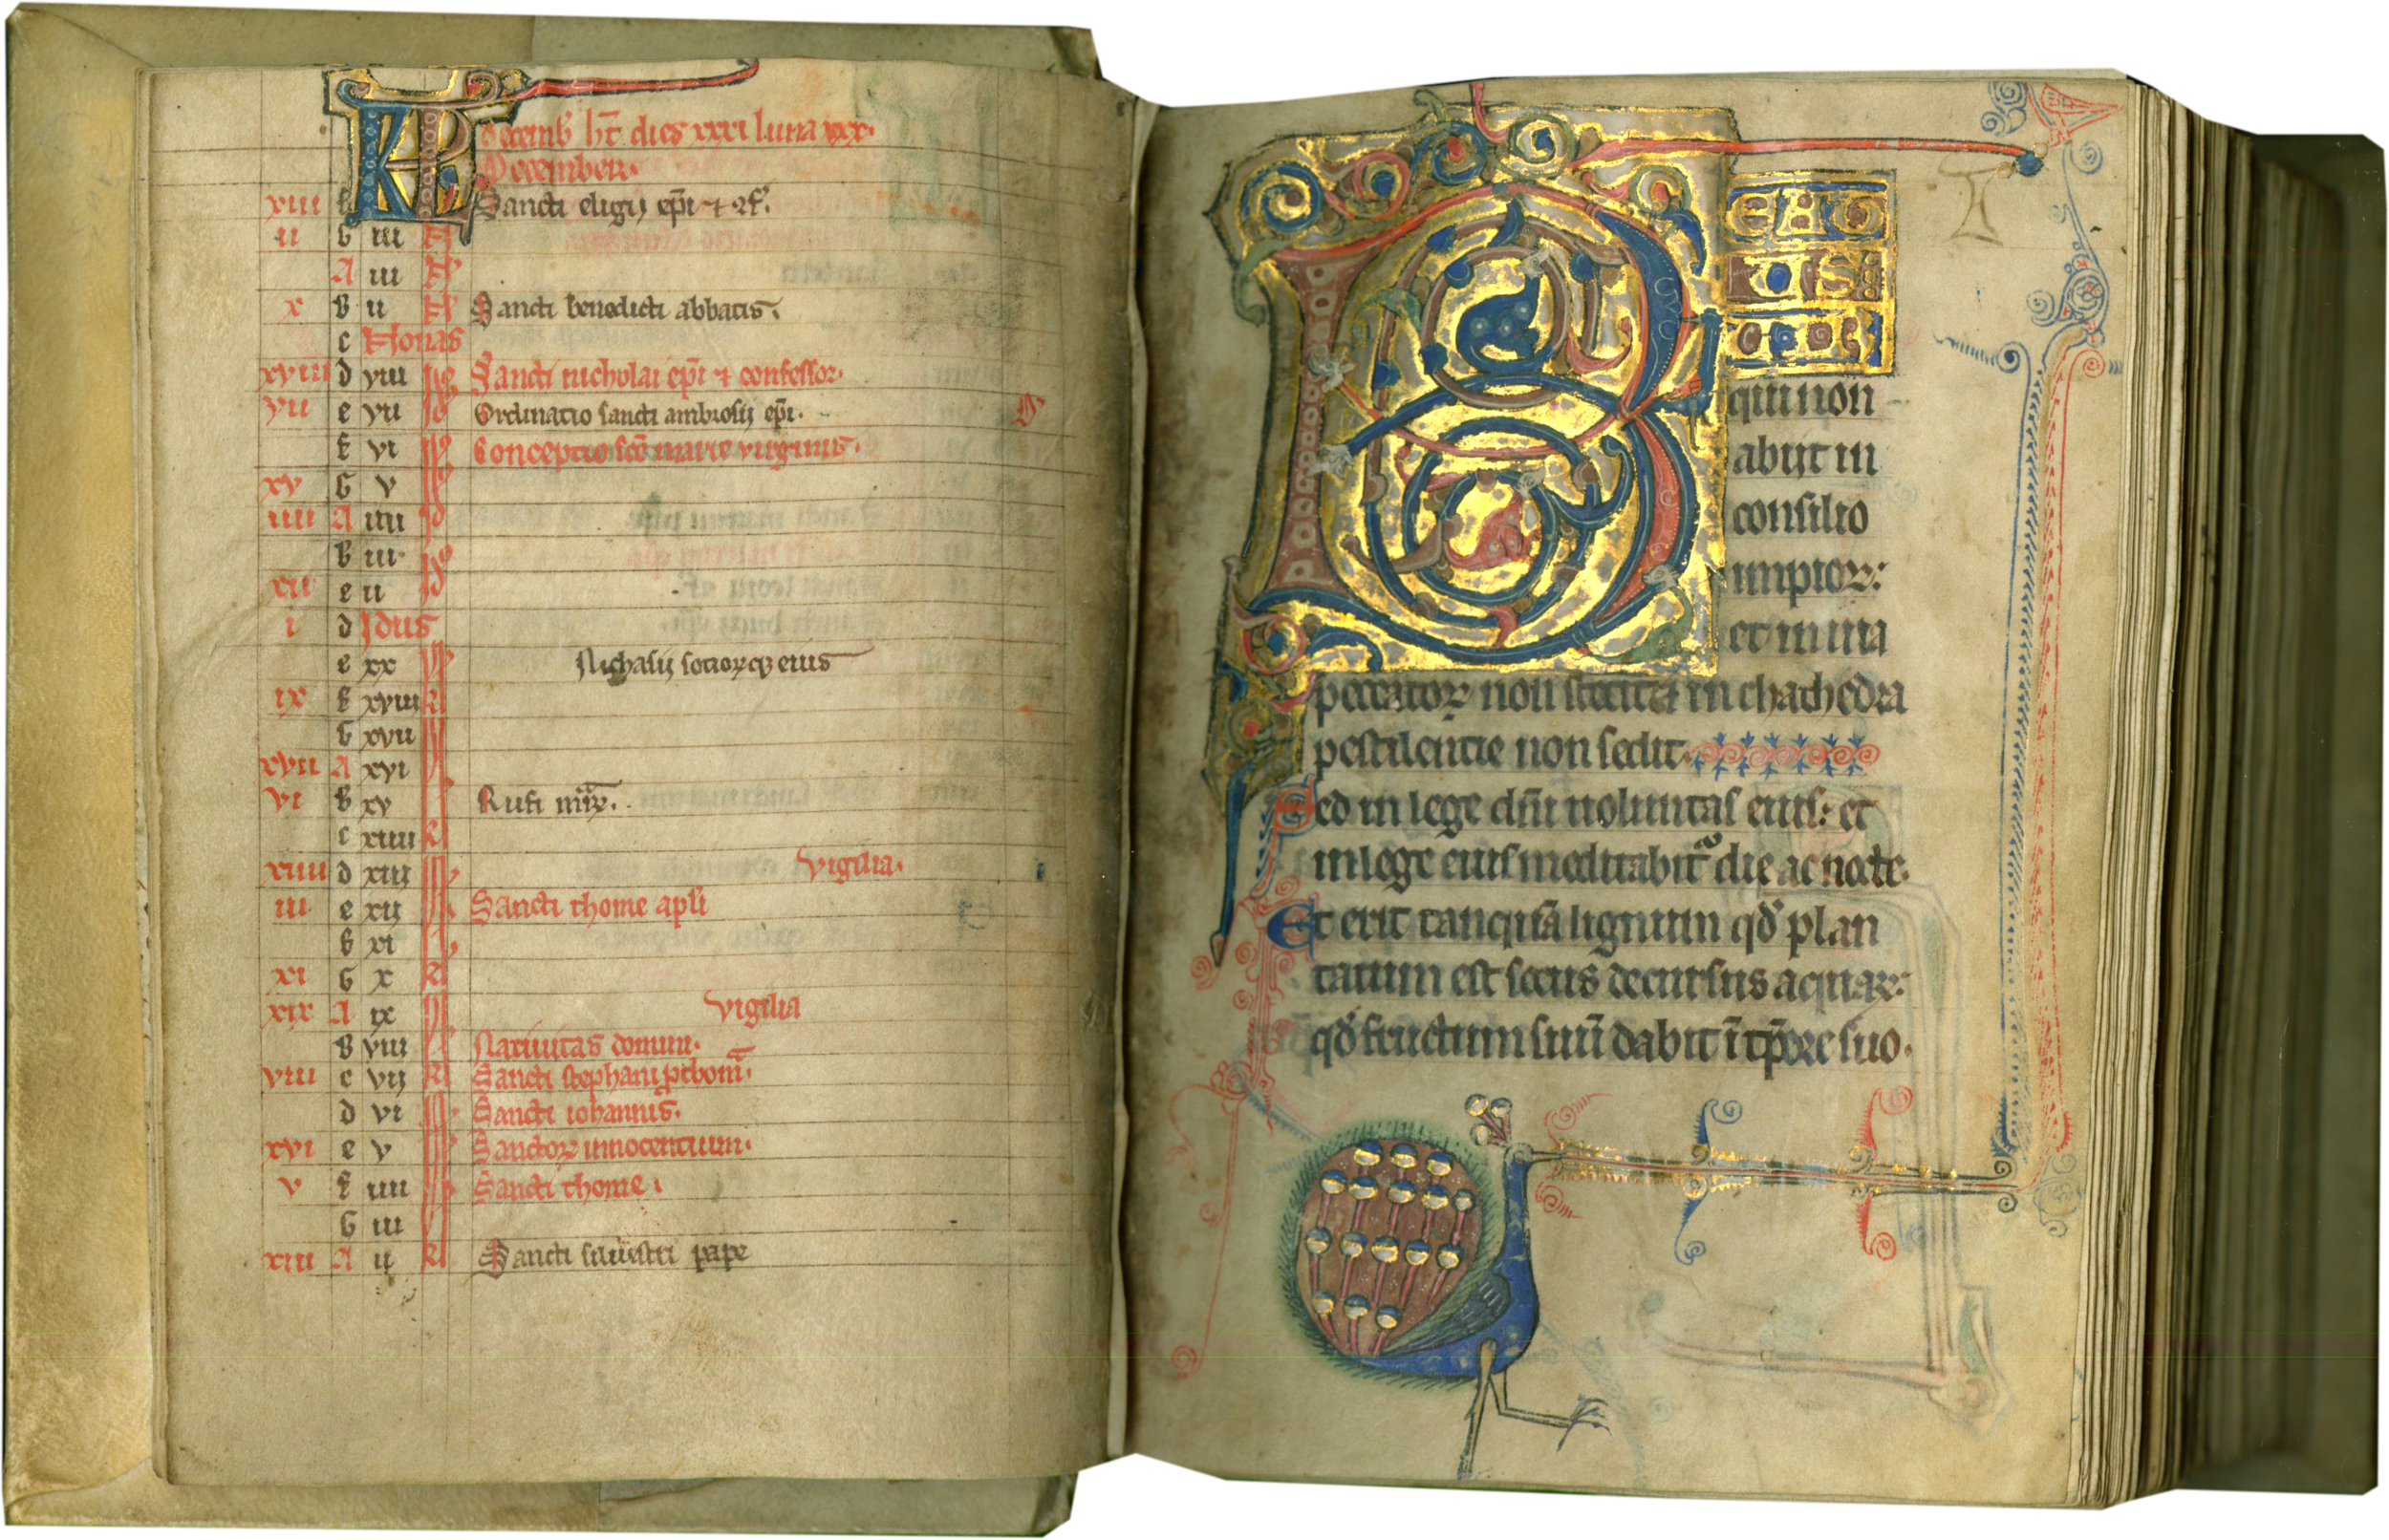 KL decemb' ht dies xxxi luna xxx.
December.
xiii f Sancti eligij epi ⁊ ɔf.
ii G iiii N
A iii N
x b ii N Sancti benedicti abbatis.
c Nonas
xviii d viii Id Sancti nicholai epi ⁊ confessor.
vii e vii Id Ordinatio sancti ambrosij epi.
f vi Id Conceptio sce marie virginis.
xv G v Id
iiii A iiii Id
b iii Id
xii c ii Id
i d Idus
e xix kl Nichasij sociorumq; eius
ix f xviii kl
G xvii kl
xvii A xvi kl
vi b xv kl Rufi mr.
c xiiii kl
xiiii d xiij kl vigilia.
iii e xii kl Sancti thome apli
f xi kl
xi G x kl
xix A ix kl vigilia
b viii kl Natiuitas domini.
viii c vij kl Sancti stephani prthom.
d vi kl Sancti iohannis.
xvi e v kl Sanctor innocentium.
v f iiii kl Sancti thome.
G iii kl
xiii A ii kl Sancti siluestri pape
BEATUS
qui non
abijt in
consilio
impior:
et in uia
peccator non stetit ⁊ in chathedra
pestilentie non sedit.
Sed in lege dni uoluntas eius: et
in lege eius meditabit' die ac nocte.
Et erit tanquã lignum qd' plan
tatum est secus decursus aquar:
qd' fructum suũ dabit ĩ tpore suo.